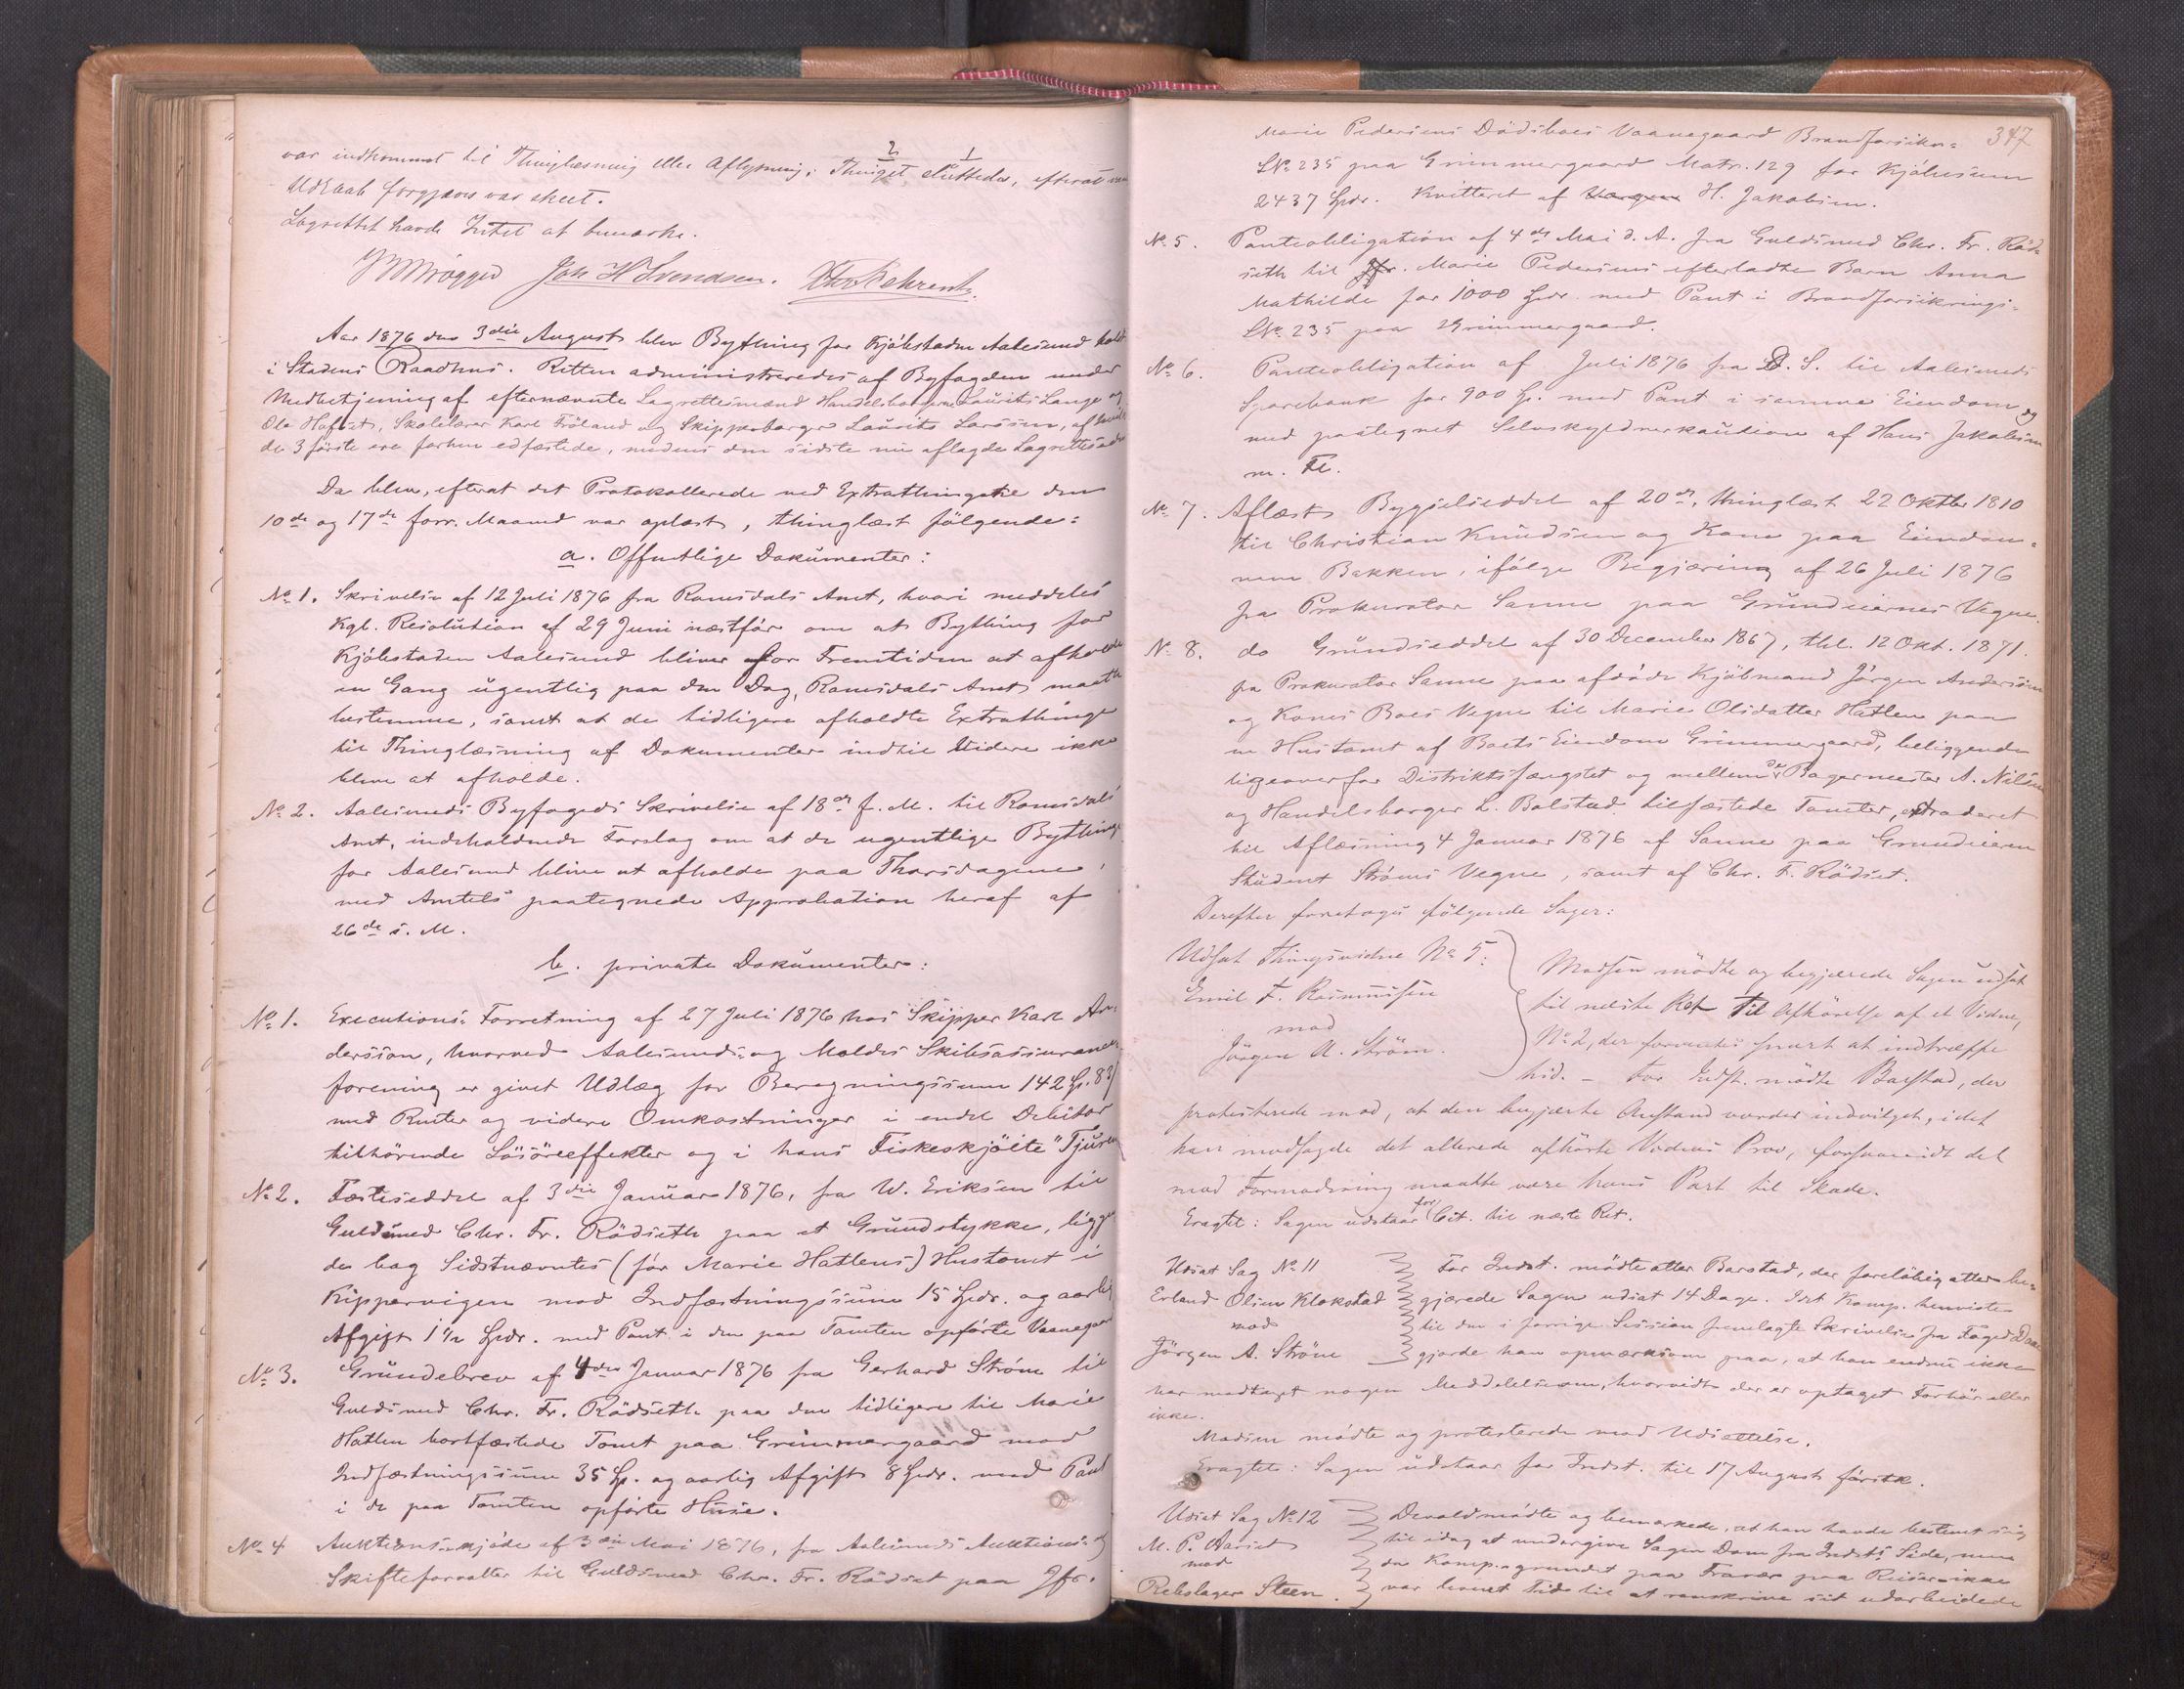 var indkommet til Thinglæsning eller Aflysning; Thinget sluttedes, efterat
2 1
Udraab forgjæves var skeet.
Lagrettet havde Intet at bemærke.
Joh H Svendsen.
Aar 1876 den 3die August blev Bything for Kjøbstaden Aalesund holdt
i Stadens Raadhus. Retten administreredes af Byfogden under
Medbetjening af efternævnte Lagrettesmænd Handelsborgerne Laurits Lange og
Ole Hofset, Skolelærer Karl Fröland og Skipperborger Laurits Larssen, af hvilke
de 3 første ere forhen edfæstede, medens den sidste nu aflagde Lagrettesed
Da blev, efterat det Protokollerede ved Extrathingene den
10de og 17de forr. Maaned var oplæst, thinglæst følgende:
a. Offentlige Dokumenter:
No 1. Skrivelse af 12 Juli 1876 fra Romsdals Amt, hvori meddeles
Kgl. Resolution af 29 Juni næstfør om at Bything for
Kjøbstaden Aalesund bliver for Fremtiden at afholde
en Gang ugentlig paa den Dag, Romsdals Amt maatte
bestemme, samt at de tidligere afholdte Extrathinge
til Thinglæsning af Dokumenter indtil Videre ikke
blive at afholde.
No 2. Aalesunds Byfogeds Skrivelse af 18de f. M. til Romsdals
Amt, indeholdende Forslag om at de ugentlige Bythinge
for Aalesund blive at afholde paa Thorsdagene,
med Amtets paategnede Approbation heraf af
26de s. M.
b. private Dokumenter:
No 1. Executions-Forretning af 27 Juli 1876 hos Skipper Karl An-
dersson, hvorved Aalesunds- og Moldes Skibsassurance-
forening er givet Udlæg for Beregningssum 142 Sp. 83
med Renter og videre Omkostninger i endel Debitor
tilhørende Løsøreeffekter og i hans Fiskeskjøite "Tjuren
No 2. Fæsteseddel af 3die Januar 1876, fra W. Eriksen til
Guldsmed Chr. Fr. Rødseth paa et Grundstykke, liggen
de bag Sidstnævntes (før Marie Hatlens) Hustomt i
Kippervigen mod Indfæstningssum 15 Spdr. og aarlig
Afgift 1 1/2 Spdr. med Pant i den paa Tomten opførte Vaanegaard
No 3. Grundebrev af 4de Januar 1876 fra Gerhard Strøm til
Guldsmed Chr. Fr. Rødseth paa den tidligere til Marie
Hatlen bortfæstede Tomt paa Grimmergaard mod
Indfæstningssum 35 Sp. og aarlig Afgift 8 Spdr. med Pant
i de paa Tomten opførte Huse.
No 4 Auktionsskjøde af 3die Mai 1876, fra Aalesunds Auktions- og
Skifteforvalter til Guldsmed Chr. Fr. Rødset paa Jfr.
347
Marie Pedersens Dødsboes Vaanegaard Brandforsikr.=
LNo 235 paa Grimmergaard Matr. 129 for Kjøbesum
2437 Spdr. Kvitteret af Værgen H. Jakobsen.
No 5. Panteobligation af 4de Mai d. A. fra Guldsmed Chr. Fr. Rød-
seth til Jfr. Marie Pedersens efterladte Barn Anna
Mathilde for 1000 Spdr. med Pant i Brandforsikrings-
LNo 235 paa Grimmergaard.
No 6. Panteobligation af Juli 1876 fra D. S. til Aalesunds
Sparebank for 900 Sp. med Pant i samme Eiendom og
med paategnet Selvskyldnerkaution af Hans Jakobsen
m. Fl.
No 7. Aflæst Bygselseddel af 20de, thinglæst 22 Oktbr 1810
til Christian Knudsen og Kone paa Eiendom-
men Bakken, ifølge Begjæring af 26 Juli 1876
fra Prokurator Sanne paa Grundeiernes Vegne.
No 8. do Grundseddel af 30 December 1867, thl. 12 Okt. 1871.
fra Prokurator Sanne paa afdøde Kjøbmand Jørgen Anderssen
og Kones Boes Vegne til Marie Olsdatter Hatlen paa
en Hustomt af Boets Eiendom Grimmergaard, beliggende
ligeoverfor Distriktsfængslet og mellem de Bagermester A. Nilsen
og Handelsborger L. Bolstad tilfæstede Tomter, extraderet
til Aflæsning 4 Januar 1876 af Sanne paa Grundeieren
Student Strøms Vegne, samt af Chr. F. Rødset.
Derefter foretoges følgende Sager:
Udsat Thingsvidne No 5:
Emil F. Rasmussen
mod
Jörgen A. Ström.
Madsen mødte og begjærede Sagen udsat
til næste Ret til Afhørelse af et Vidne,
No 2, der forventes snart at indtræffe
hid. — For Indst. mødte Barstad, der
protesterede mod, at den begjærte Anstand vorder indvilget, idet
han modsagde det allerede afhørte Vidnes Prov, forsaavidt det
mod Formodning maatte være hans Part til Skade.
Eragtet: Sagen udstaar for Cit. til næste Ret.
Udsat Sag No 11
Erland Olsen Klokstad
mod
Jørgen A. Strøm
For Indst. mødte atter Barstad, der foreløbig atter be-
gjærede Sagen udsat 14 Dage. Idet Komp. henviste
til den i forrige Session fremlagte Skrivelse fra Foged
gjorde han opmærksom paa, at han endnu ikke
har modtaget nogen Meddelelse om, hvorvidt der er optaget Forhør eller
ikke.
Madsen mødte og protesterede mod Udsættelse.
Eragtet: Sagen udstaar for Indst. til 17 August førstk.
Udsat Sag No 12
M. P. Aarset
mod
Rebslager Steen.
Devold mødte og bemærkede, at han havde bestemt sig
til idag at undergive Sagen Dom fra Indsts Side, men
da Komp. grundet paa Fravær paa Reiser ikke
var levnet Tid til at renskrive sit udarbeidede